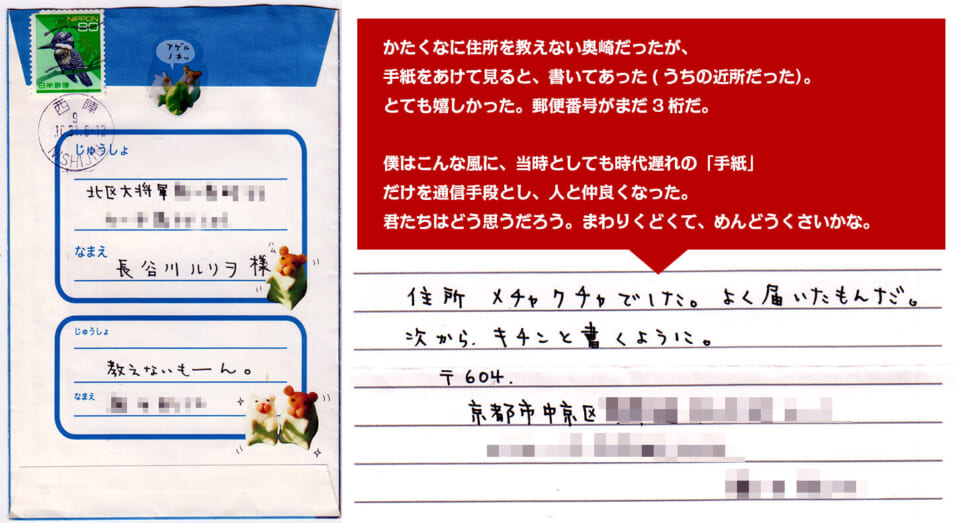 NIPPON
80
日本郵便
アゲル
ノネッ
西陣
9
NISHIJIN
じゅうしょ
北区大将軍
なまえ
長谷川ルリヲ様
じゅうしょ
教えないもーん。
なまえ
かたくなに住所を教えない奥崎だったが、
手紙をあけて見ると、書いてあった(うちの近所だった)。
とても嬉しかった。郵便番号がまだ3桁だ。
僕はこんな風に、当時としても時代遅れの「手紙」
だけを通信手段とし、人と仲良くなった。
君たちはどう思うだろう。まわりくどくて、めんどうくさいかな。
住所 メチャクチャでした。よく届いたもんだ。
次から、キチンと書くように。
〒604.
京都市中京区